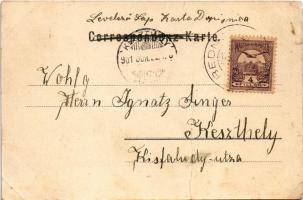 Levelező Lap Karta Dopisnica
Correspondenz-Karte.
REDN
4
Wohlg
Herrn Ignatz Singer
Keszthely
Kisfaludy-utza